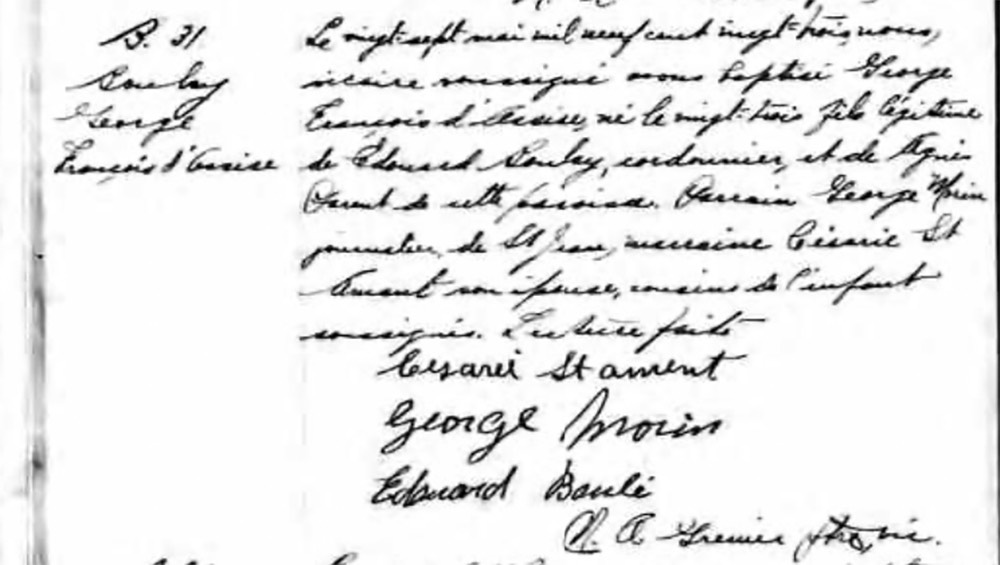 B. 31
Boulay
George
François d'Assise
Le vingt-sept mai mil neuf cent vingt-trois, nous,
vicaire soussigné avons baptisé George
François d'Assise, né le vingt-trois fils légitime
de Edouard Boulay, cordonnier, et de Agnès
Parent de cette paroisse. Parrain George Morin
journalier, de St Jean, marraine Césarie St
Amant son épouse, cousins de l'enfant
soussignés. Lecture faite
Cesarie St ament
George Morin
Edouard Boulé
N. A. Grenier ptre, vic.